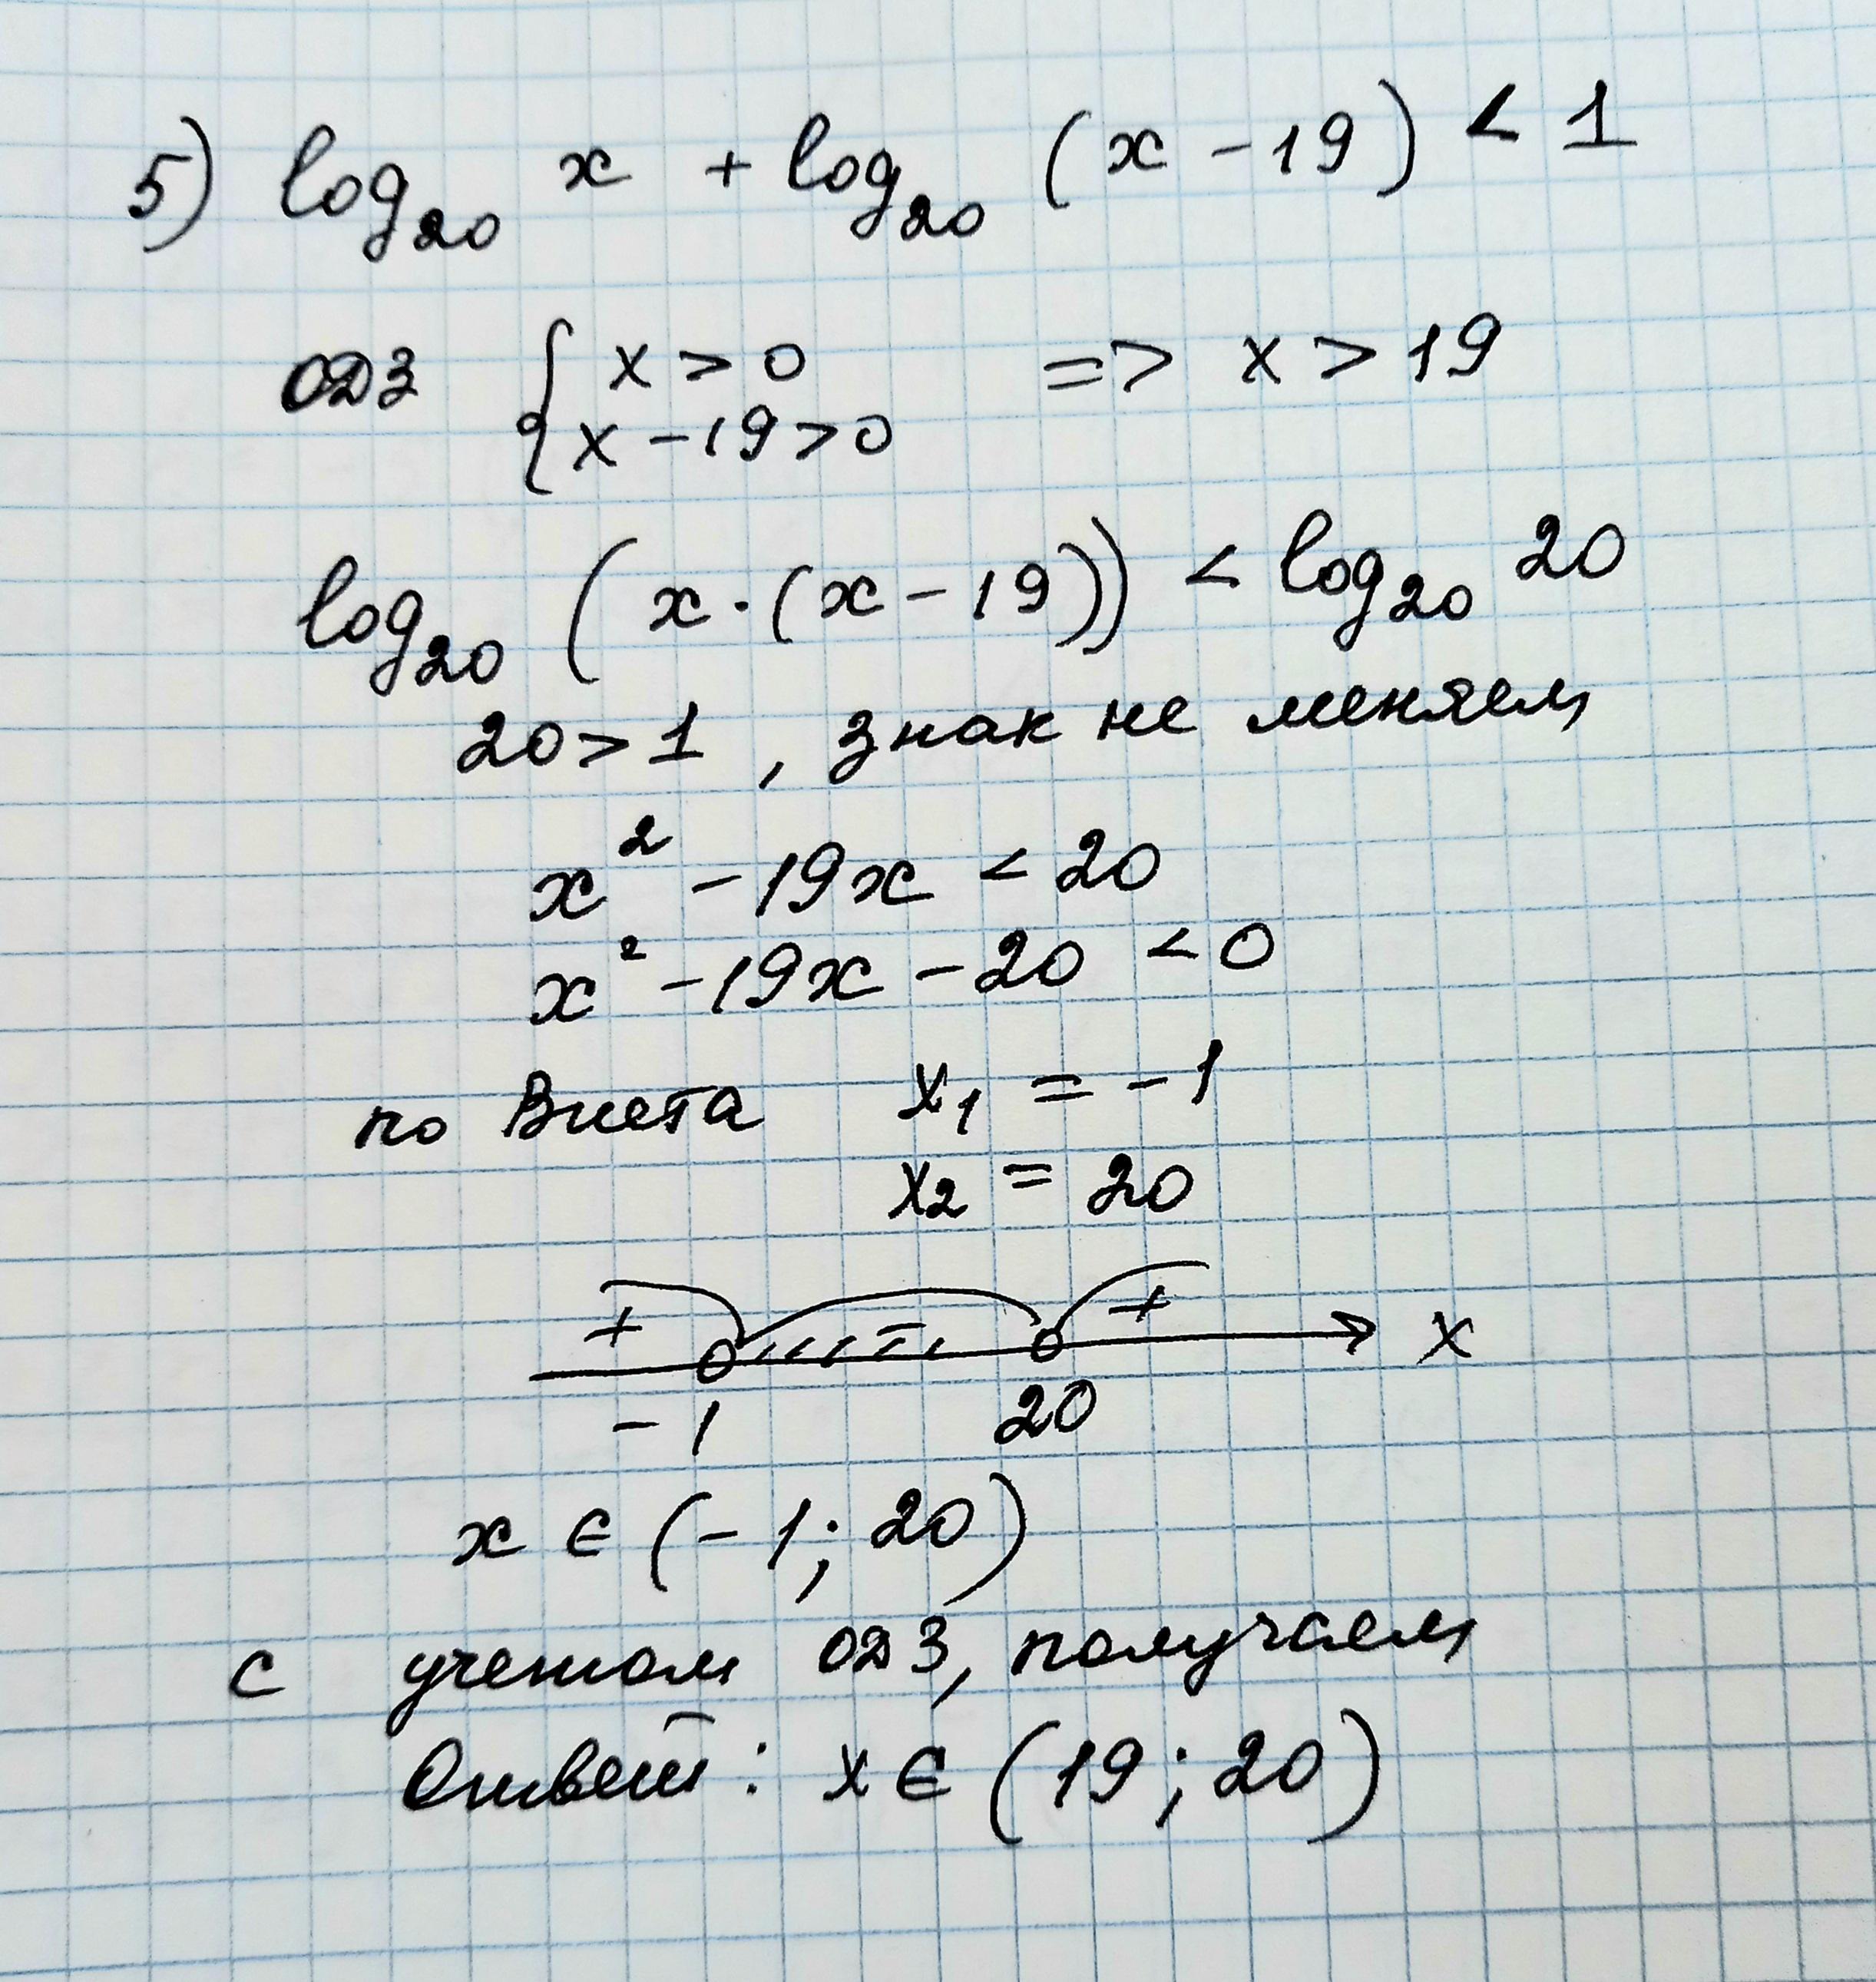 5) log₂₀ x + log₂₀ (x - 19) < 1
ОДЗ { x > 0 => x > 19
x - 19 > 0
log₂₀ (x · (x - 19)) < log₂₀ 20
20 > 1, знак не меняем
x² - 19x < 20
x² - 19x - 20 < 0
по Виета x₁ = -1
x₂ = 20
+ - + x
-1 20
x ∈ (-1; 20)
с учетом ОДЗ, получаем
Ответ: x ∈ (19; 20)